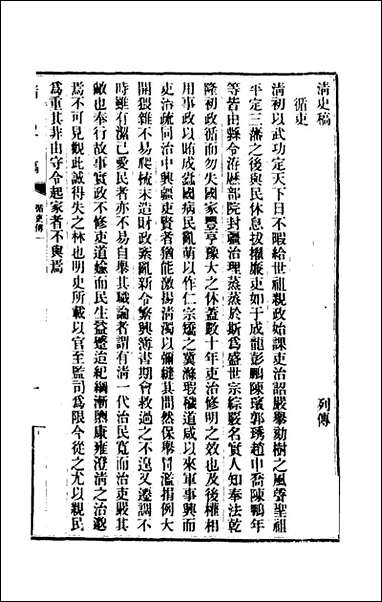 清史稿 列傳
循吏
清初以武功定天下日不暇給世祖親政始課吏治詔嚴舉劾樹之風聲聖祖
平定三藩之後與民休息拔擢廉吏如于成龍彭鵬陳璸郭琇趙申喬陳鵬年
等皆由縣令洊歷部院封疆治理蒸蒸於斯爲盛世宗綜覈名實人知奉法乾
隆初政循而勿失國家豐亨豫大之休蓋數十年吏治修明之效也及後權相
用事政以賄成蠹國病民亂萌以作仁宗矯之冀滌瑕穢道咸以來軍事興而
吏治疏同治中興疆吏賢者猶能激揚清濁以彌縫其間然保舉冒濫捐例大
開猥雜不易爬梳末造財政紊亂新令繁興簿書期會救過之不遑又遷調不
時雖有潔己愛民者亦不易自舉其職論者謂有清一代治民寬而治吏嚴其
敝也奉行故事實政不修吏道媮而民生益蹙迨紀綱漸隳康雍澄清之治邈
焉不可見觀此誠得失之林也明史所載以官至監司爲限今從之尤以親民
爲重其非由守令起家者不與焉
循吏傳一 一